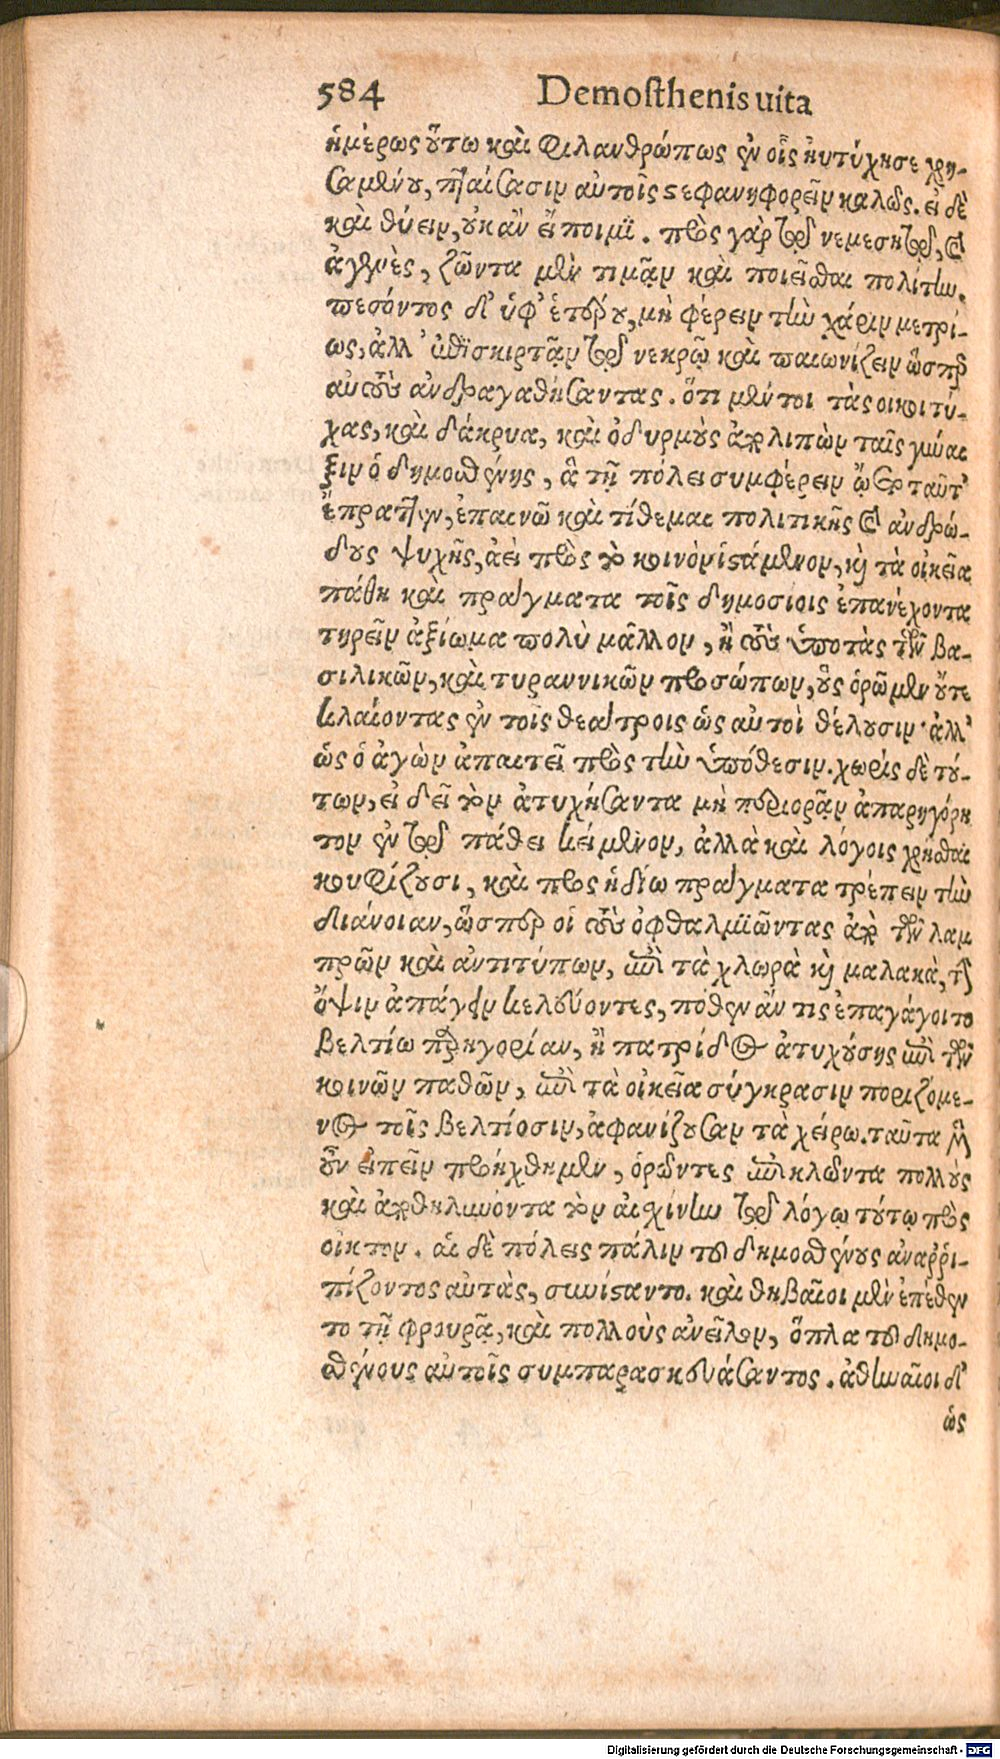 584 Demosthenis uita
ἡμέρως οὕτω καὶ φιλανθρώπως ἐν οἷς ηὐτύχησε χρη-
σαμένου, πταίσασιν αὐτοῖς στεφανηφορεῖν καλῶς. εἰ δὲ
καὶ θύειν, οὐκ ἂν εἴποιμι. πρὸς γὰρ τῷ νεμεσητῷ, καὶ
ἀγεννὲς, ζῶντα μὲν τιμᾷν καὶ ποιεῖσθαι πολίτην.
πεσόντος δ' ὑφ' ἑτέρου, μὴ φέρειν τὴν χάριν μετρί-
ως, ἀλλ' ἐπισκιρτᾷν τῷ νεκρῷ καὶ παιωνίζειν ὥσπερ
αὐτοὺς ἀνδραγαθήσαντας. ὅτι μέντοι τὰς οἴκοι τύ-
χας, καὶ δάκρυα, καὶ ὀδυρμοὺς ἀπολιπὼν ταῖς γυναι
ξιν ὁ δημοσθένης, ἃ τῇ πόλει συμφέρειν ᾤετο ταῦτ'
ἔπραττεν, ἐπαινῶ καὶ τίθεμαι πολιτικῆς καὶ ἀνδρώ-
δους ψυχῆς, ἀεὶ πρὸς τὸ κοινὸν ἱστάμενον, καὶ τὰ οἰκεῖα
πάθη καὶ πράγματα τοῖς δημοσίοις ἐπανέχοντα
τηρεῖν ἀξίωμα πολὺ μᾶλλον, ἢ τοὺς ὑποτὰς τῶν βα-
σιλικῶν, καὶ τυραννικῶν προσώπων, οὓς ὁρῶμεν οὔτε
κλαίοντας ἐν τοῖς θεάτροις ὡς αὐτοὶ θέλουσιν· ἀλλ'
ὡς ὁ ἀγὼν ἀπαιτεῖ πρὸς τὴν ὑπόθεσιν. χωρὶς δὲ τού-
των, εἰ δεῖ τὸν ἀτυχήσαντα μὴ περιορᾷν ἀπαρηγόρη
τον ἐν τῷ πάθει κείμενον, ἀλλὰ καὶ λόγοις χρῆσθαι
κουφίζουσι, καὶ πρὸς ἡδίω πράγματα τρέπειν τὴν
διάνοιαν, ὥσπερ οἱ τοὺς ὀφθαλμιῶντας ἀπὸ τῶν λαμ
πρῶν καὶ ἀντιτύπων, ἐπὶ τὰ χλωρὰ καὶ μαλακὰ, τὴν
ὄψιν ἀπάγειν κελεύοντες, πόθεν ἄν τις ἐπαγάγοιτο
βελτίω παρηγορίαν, ἢ πατρίδος ἀτυχούσης ἐπὶ τῶν
κοινῶν παθῶν, ἐπὶ τὰ οἰκεῖα σύγκρασιν ποριζόμε-
νος τοῖς βελτίοσιν, ἀφανίζουσαν τὰ χείρω. ταῦτα μὲν
οὖν εἰπεῖν προήχθημεν, ὁρῶντες ἐπικλῶντα πολλοὺς
καὶ ἀποθηλύνοντα τὸν αἰσχίνην τῷ λόγῳ τούτῳ πρὸς
οἶκτον. αἱ δὲ πόλεις πάλιν τοῦ δημοσθένους ἀναῤῥι-
πίζοντος αὐτὰς, συνίσταντο. καὶ θηβαῖοι μὲν ἐπέθεν
το τῇ φρουρᾷ, καὶ πολλοὺς ἀνεῖλον, ὅπλα τοῦ δημο-
σθένους αὐτοῖς συμπαρασκευάσαντος. ἀθηναῖοι δ'
ὡς
Digitalisierung gefördert durch die Deutsche Forschungsgemeinschaft - DFG